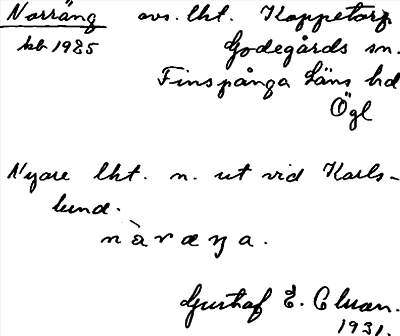 Norräng avs. lht. Koppetorp
kb 1925 Godegårds sn.
Finspånga Läns hd
Ögl
Nyare lht. n. ut vid Karls-
lund.
Gustaf E.
1931.